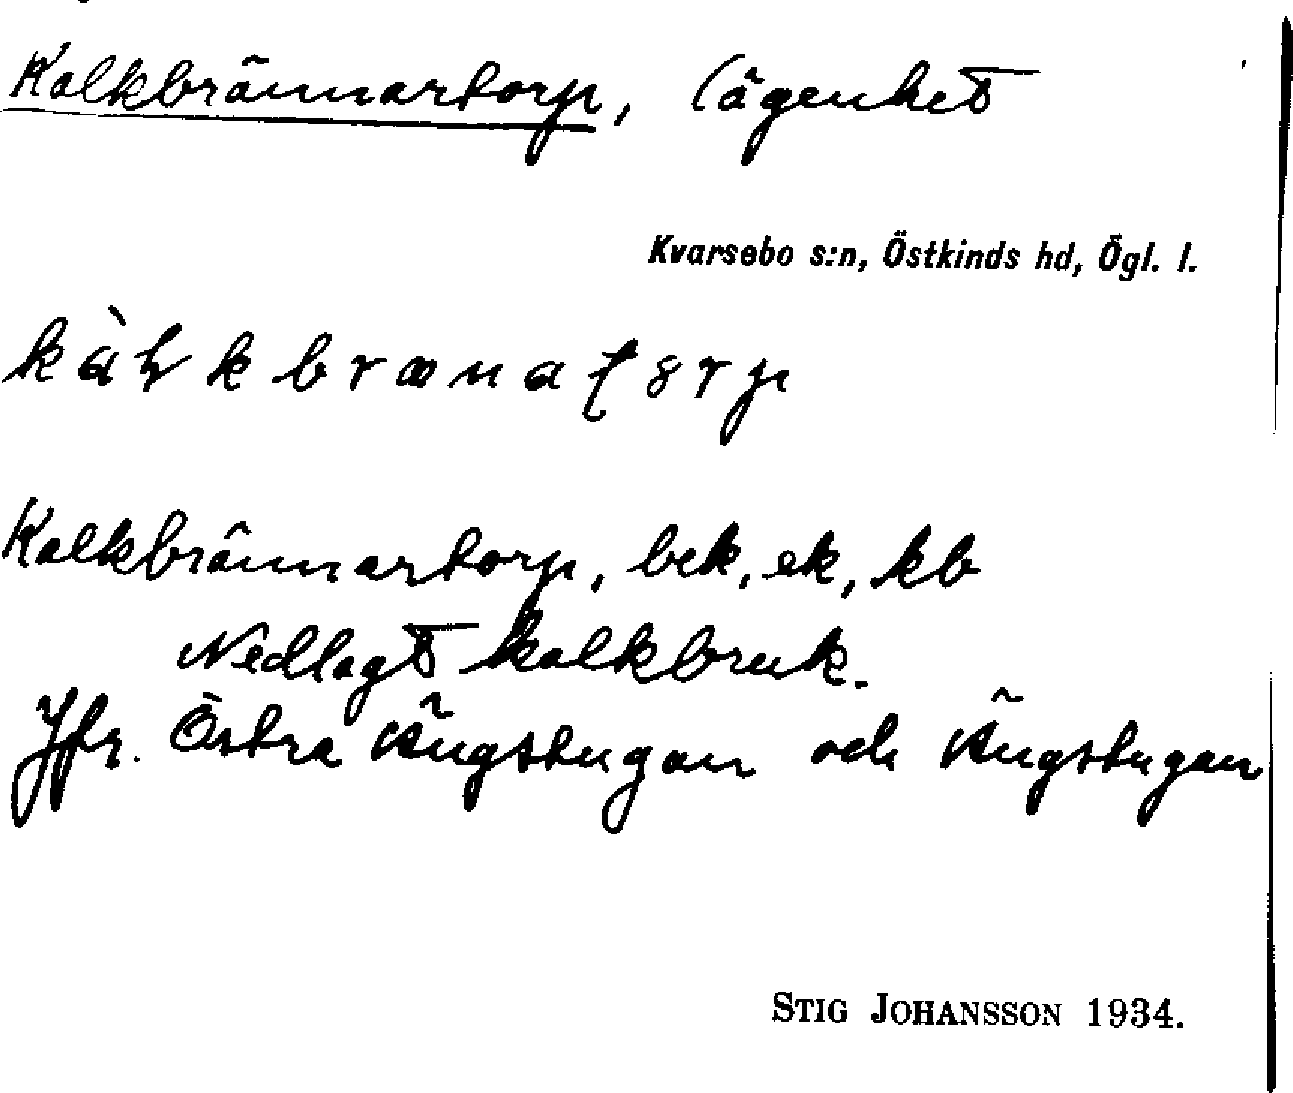 Kalkbrännartorp, lägenhet
Kvarsebo s:n, Östkinds hd, Ögl. l.
Kalkbrännartorp, bek, ek, kb
Nedlagt kalkbruk.
Jfr. Östra Ängstugan och Ängstugan
STIG JOHANSSON 1934.